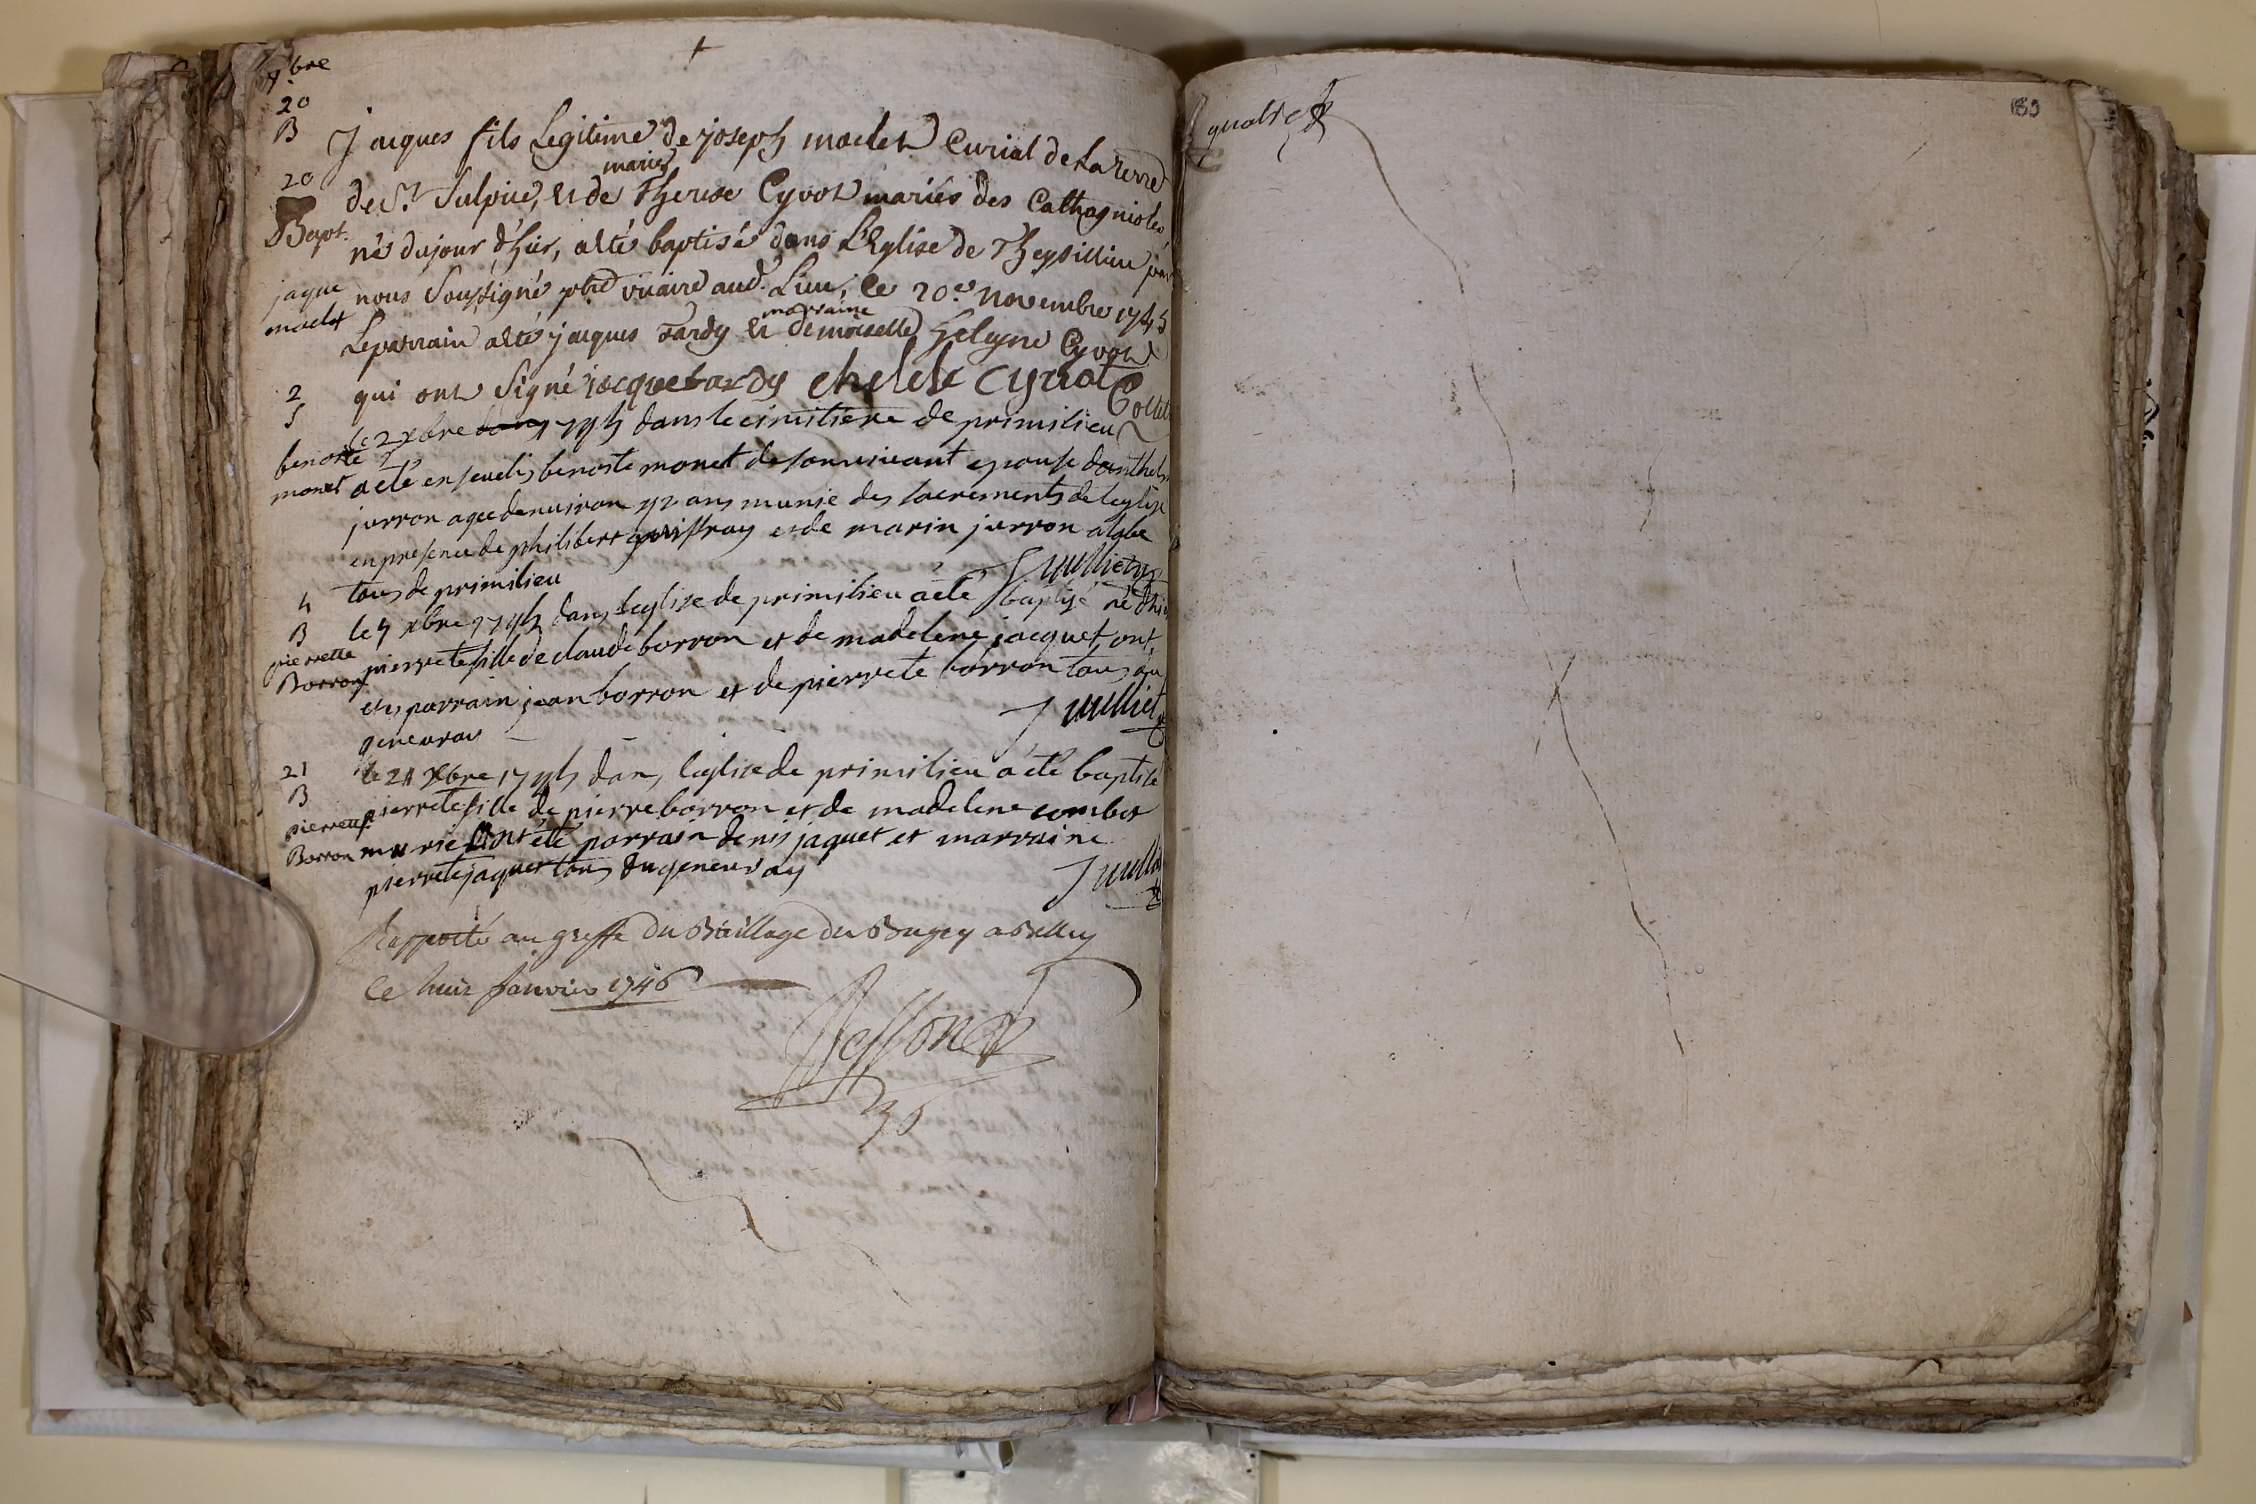 9bre
20
B
Jacques fils Legitime de joseph maclet Curial de La Terre
mariés
20
de St. Sulpice, et de Therese Cyvot mariés des Cathagnioles
Bapt.
né du jour d'hier, a été baptisé dans L'Eglise de Theysillieu par
jaque
maclet
nous Soussigné ptre vicaire aud. Lieu, le 20e. novembre 1745
marraine
Leparrain a été jacques tardy et demoiselle helene Cyvot
qui ont Signé jacque tardy Cyvot Collet
2
S
benoste
monet
le 2 xbre 1745 dans le cimitiere de primilieu
a eté enseveli benoste monet de son vivant epouse danthel
jurron agee denviron 42 ans munie des sacrements de leglise
en presence de philibert et de marin jurron
tous de primilieu Juilliet
4
B
pierrette
Borron
le 4 xbre 1745 dans leglise de primilieu a eté baptisé né dhier
pierrete fille de claude borron et de madelene jacquet ont
etes parrain jean borron et de pierrete borron tous du
genevray Juilliet
21
B
pierrette
Borron
le 21 xbre 1745 dans leglise de primilieu a été baptisé
pierrete fille de pierre borron et de madelene combet
mariés ont été parrain denis jaquet et marraine
pierrete jaquet tous du genevray Juilliet
Rapporté au greffe du Bailliage du Bugey a Belley
Le huit Janvier 1746
quatre
183